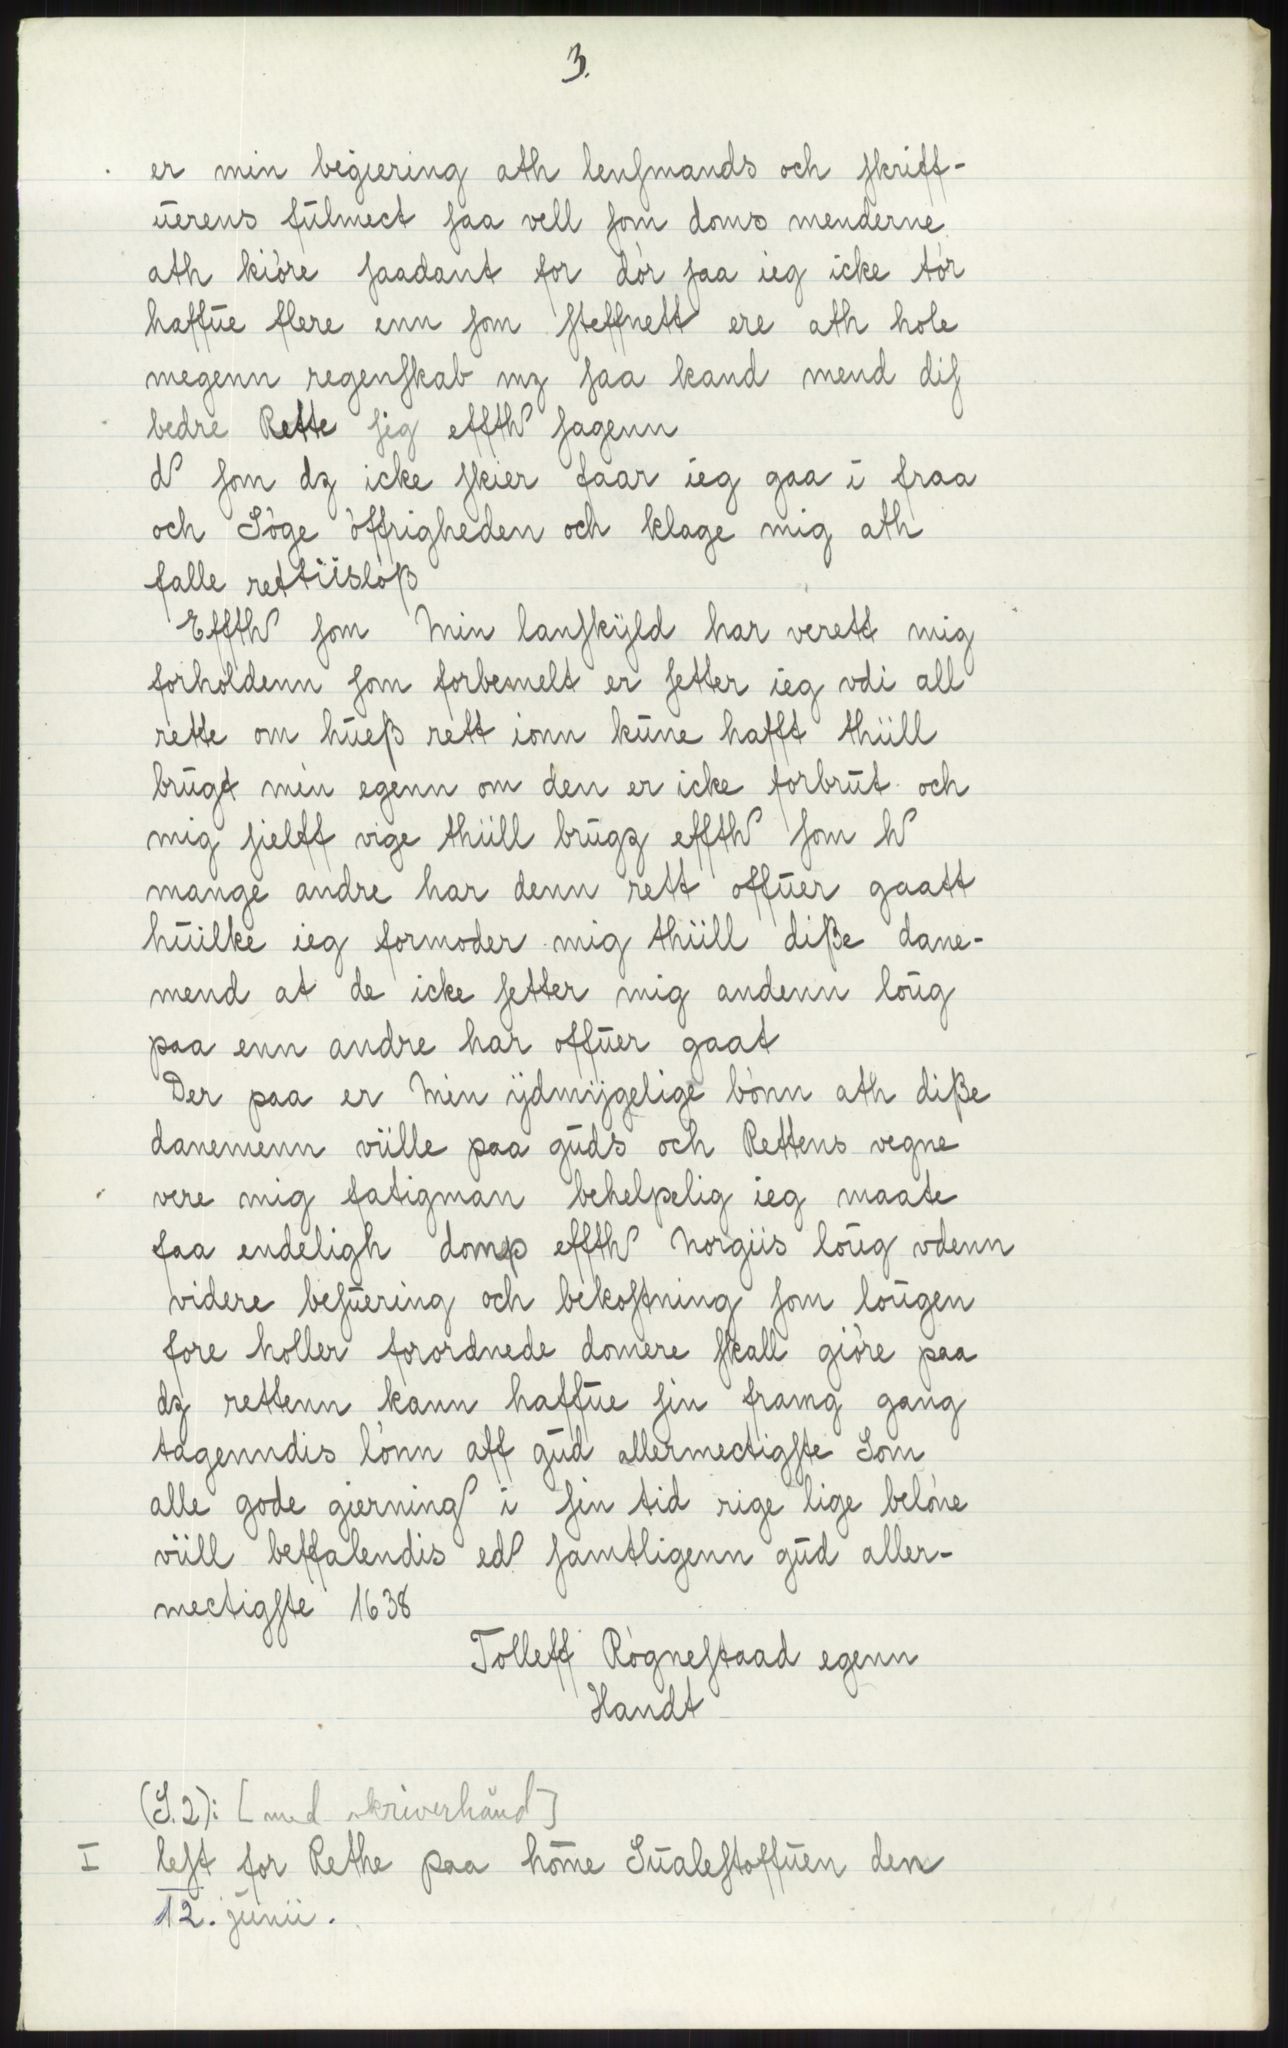 3.
er min begiering ath lensmands och skriff-
uerens fulmect saa vell som doms menderne
ath kiöre saadant for dör saa ieg icke tör
haffue flere enn som steffnett ere ath hole
megenn regenskab mz saa kand mend dis
bedre Rette sig effth sagenn
d som dz icke skier faar ieg gaa i fraa
och Söge öffrigheden och klage mig ath
falle rettiislöß
Effth som Min lanskijld har verett mig
forholdenn som forbemelt er setter ieg vdi all
rette om hueß rett ionn kune hafft thiill
brugt min egenn om den er icke forbrut och
mig sielff vige thiill brugz effth som h
mange andre har denn rett offuer gaatt
huilke ieg formoder mig thiill diße dane-
mend at de icke setter mig andenn loug
paa enn andre har offuer gaat
Der paa er Min ijdmijgelige bönn ath diße
danemenn viille paa guds och Rettens vegne
vere mig fatigman behelpelig ieg maate
faa endeligh dom effth Norgiis loug vdenn
videre besuering och bekostning som lougen
fore holler forordnede domere skall giöre paa
dz rettenn kann haffue sin framg gang
tagenndis lönn aff gud allermectigste Som
alle gode gierning i sin tid rige lige belöne
viill beffalendis ed samtligenn gud aller-
mectigste 1638
Tolleff Rögnestaad egenn
Handt
(S.2): [med skriverhånd]
I lest for Rethe paa home Sualestoffuen den
12. junii.